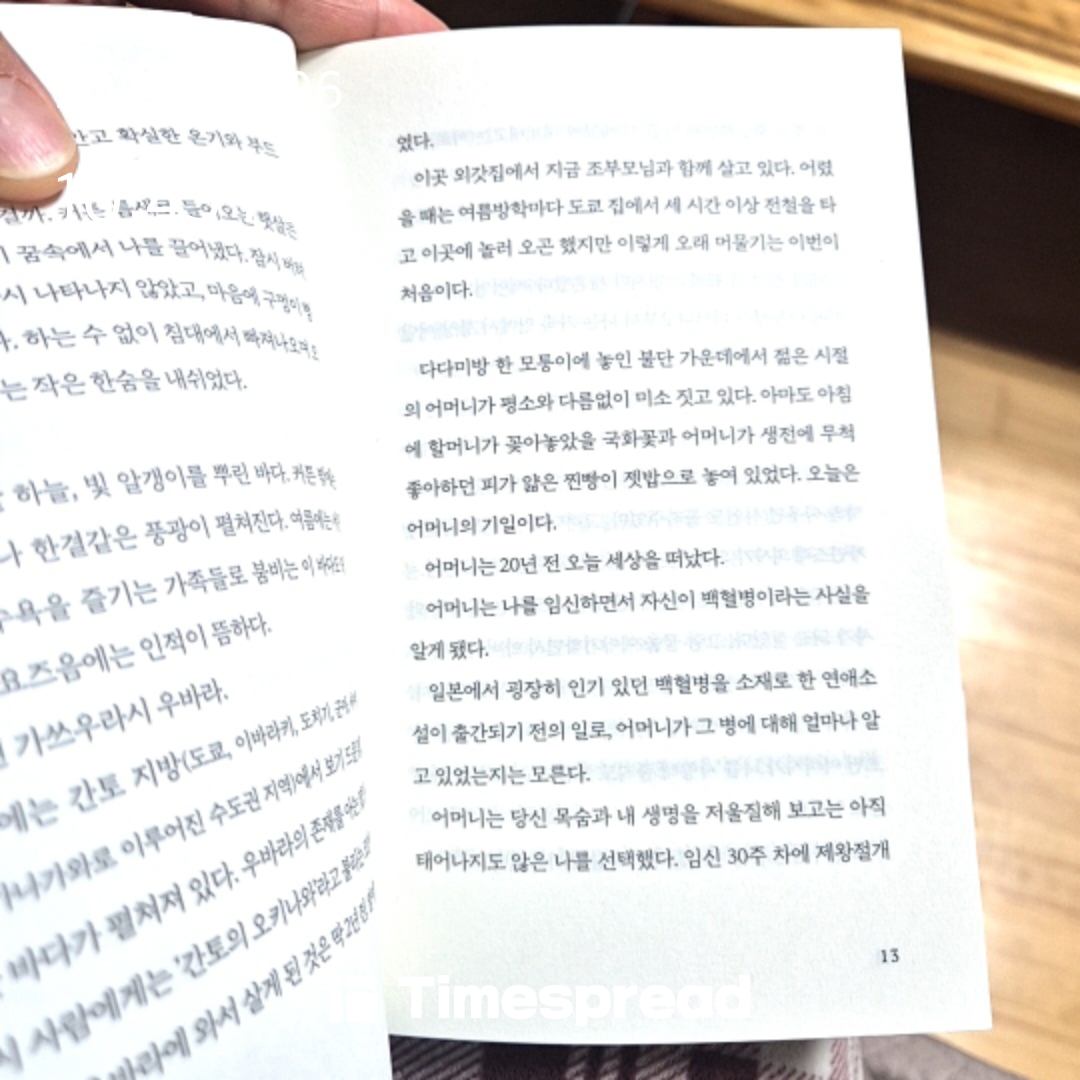 안고 확실한 온기와 부드
걸까. 커튼 틈새로 들어오는 햇살은
꿈속에서 나를 끌어냈다. 잠시 버텨
시 나타나지 않았고, 마음에 구멍이 뻥
하는 수 없이 침대에서 빠져나오며
는 작은 한숨을 내쉬었다.
하늘, 빛 알갱이를 뿌린 바다. 커튼
나 한결같은 풍광이 펼쳐진다. 여름에는
수욕을 즐기는 가족들로 붐비는 이 바다도
요즈음에는 인적이 뜸하다.
가쓰우라시 우바라.
에는 간토 지방(도쿄, 이바라키, 도치기, 군마,
가나가와로 이루어진 수도권 지역)에서 보기 드문
바다가 펼쳐져 있다. 우바라의 존재를 아는
시 사람에게는 '간토의 오키나와'라고 불리는
우바라에 와서 살게 된 것은 딱 2년
었다.
이곳 외갓집에서 지금 조부모님과 함께 살고 있다. 어렸
을 때는 여름방학마다 도쿄 집에서 세 시간 이상 전철을 타
고 이곳에 놀러 오곤 했지만 이렇게 오래 머물기는 이번이
처음이다.
다다미방 한 모퉁이에 놓인 불단 가운데에서 젊은 시절
의 어머니가 평소와 다름없이 미소 짓고 있다. 아마도 아침
에 할머니가 꽂아놓았을 국화꽃과 어머니가 생전에 무척
좋아하던 피가 얇은 찐빵이 젯밥으로 놓여 있었다. 오늘은
어머니의 기일이다.
어머니는 20년 전 오늘 세상을 떠났다.
어머니는 나를 임신하면서 자신이 백혈병이라는 사실을
알게 됐다.
일본에서 굉장히 인기 있던 백혈병을 소재로 한 연애소
설이 출간되기 전의 일로, 어머니가 그 병에 대해 얼마나 알
고 있었는지는 모른다.
어머니는 당신 목숨과 내 생명을 저울질해 보고는 아직
태어나지도 않은 나를 선택했다. 임신 30주 차에 제왕절개
13
Timespread